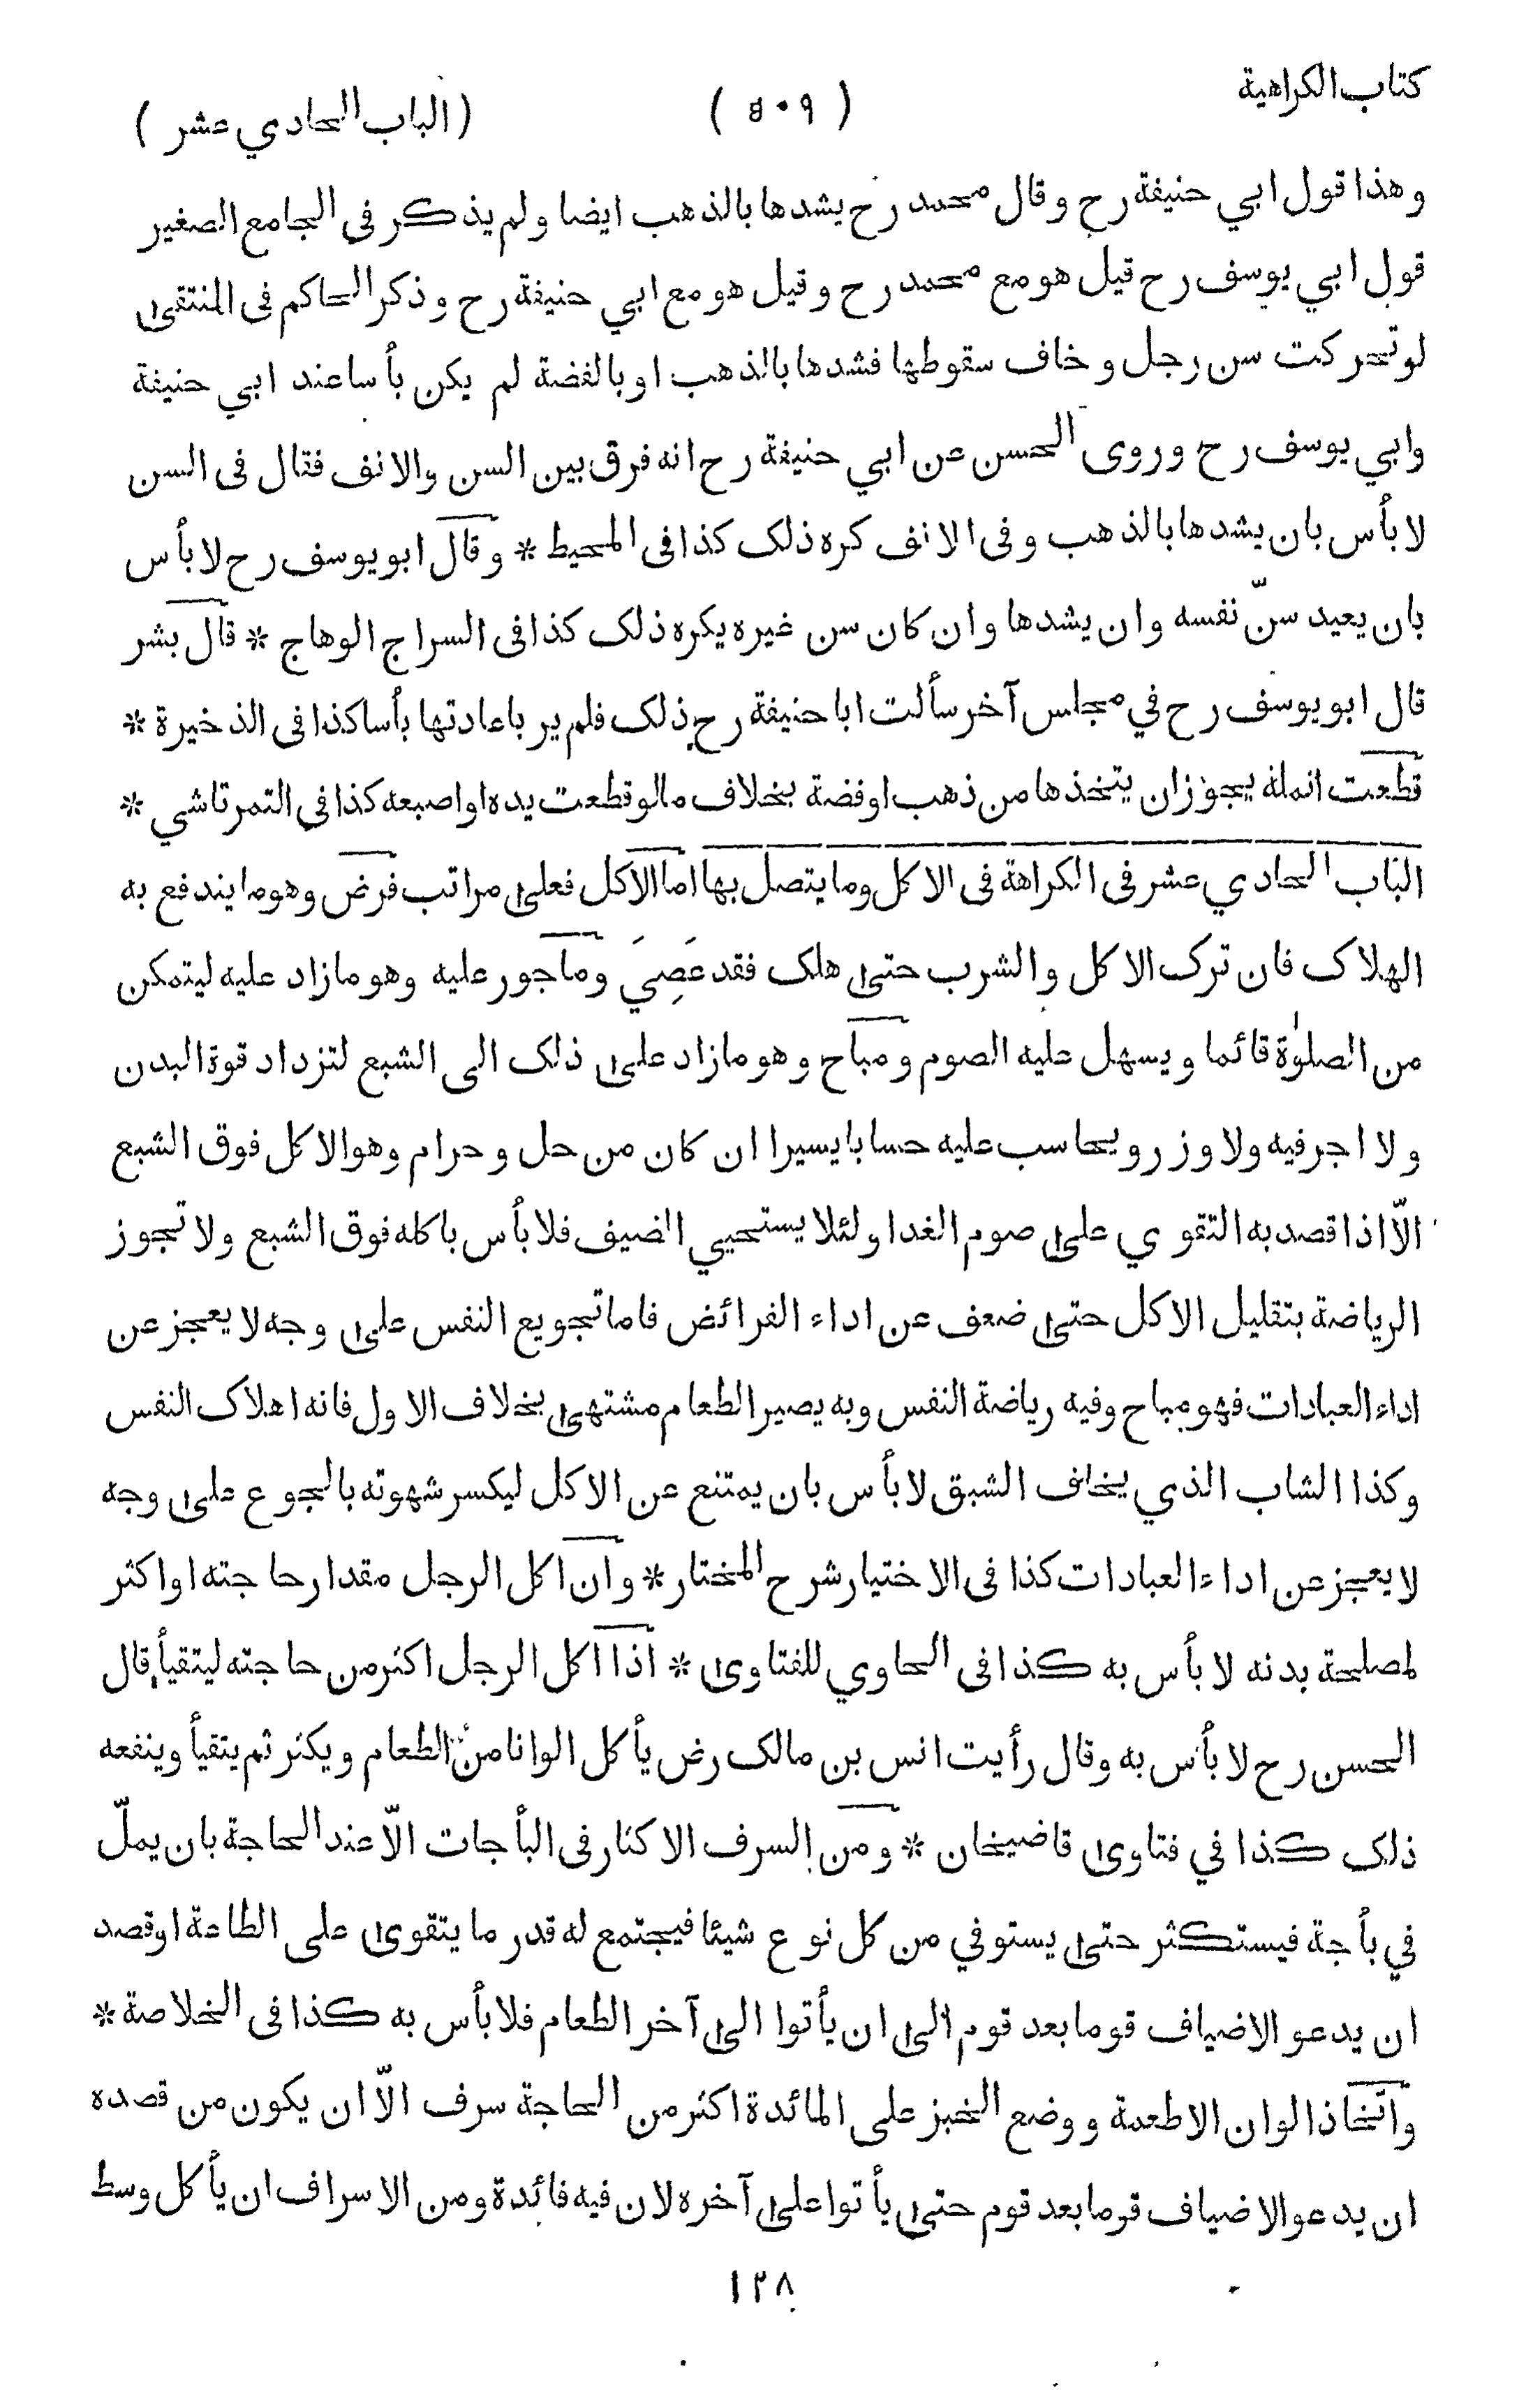 كتاب الكراهية
( ٥٠٩ )
( الباب الحادي عشر )
وهذا قول ابي حنيفة رح وقال محمد رح يشدها بالذهب ايضا ولم يذكر فى الجامع الصغير
قول ابي يوسف رح قيل هو مع محمد رح وقيل هو مع ابي حنيفة رح وذكر الحاكم فى المنتقى
لو تحركت سن رجل وخاف سقوطها فشدها بالذهب او بالفضة لم يكن بأسا عند ابي حنيفة
وابي يوسف رح وروى الحسن عن ابي حنيفة رح انه فرق بين السن والانف فقال فى السن
لا بأس بان يشدها بالذهب وفى الانف كره ذلك كذا فى المحيط * وقال ابو يوسف رح لا بأس
بان يعيد سنّ نفسه وان يشدها وان كان سن غيره يكره ذلك كذا فى السراج الوهاج * قال بشر
قال ابو يوسف رح في مجلس آخر سألت ابا حنيفة رح ذلك فلم ير باعادتها بأسا كذا فى الذخيرة *
قطعت انملة يجوز ان يتخذها من ذهب او فضة بخلاف ما لو قطعت يده او اصبعه كذا فى التمرتاشي *
الباب الحادي عشر فى الكراهة فى الاكل وما يتصل بها اما الاكل فعلى مراتب فرض وهو ما يندفع به
الهلاك فان ترك الاكل والشرب حتى هلك فقد عَصِيَ وماجور عليه وهو ما زاد عليه ليتمكن
من الصلوٰة قائما ويسهل عليه الصوم ومباح وهو ما زاد على ذلك الى الشبع لتزداد قوة البدن
ولا اجر فيه ولا وزر ويحاسب عليه حسابا يسيرا ان كان من حل وحرام وهو الاكل فوق الشبع
الّا اذا قصد به التقوي على صوم الغد او لئلا يستحيي الضيف فلا بأس باكله فوق الشبع ولا تجوز
الرياضة بتقليل الاكل حتى ضعف عن اداء الفرائض فاما تجويع النفس على وجه لا يعجز عن
اداء العبادات فهو مباح وفيه رياضة النفس وبه يصير الطعام مشتهى بخلاف الاول فانه اهلاك النفس
وكذا الشاب الذي يخاف الشبق لا بأس بان يمتنع عن الاكل ليكسر شهوته بالجوع على وجه
لا يعجز عن اداء العبادات كذا فى الاختيار شرح المختار * وان اكل الرجل مقدار حاجته او اكثر
لمصلحة بدنه لا بأس به كذا فى الحاوي للفتاوى * اذا اكل الرجل اكثر من حاجته ليتقيأ قال
الحسن رح لا بأس به وقال رأيت انس بن مالك رض يأكل الوانا من الطعام ويكثر ثم يتقيأ وينفعه
ذلك كذا في فتاوى قاضيخان * ومن السرف الاكثار فى البأجات الّا عند الحاجة بان يملّ
في بأجة فيستكثر حتى يستوفي من كل نوع شيئا فيجتمع له قدر ما يتقوى على الطاعة او قصد
ان يدعو الاضياف قوما بعد قوم الى ان يأتوا الى آخر الطعام فلا بأس به كذا فى الخلاصة *
واتّخاذ الوان الاطعمة ووضع الخبز على المائدة اكثر من الحاجة سرف الّا ان يكون من قصده
ان يدعو الاضياف قوما بعد قوم حتى يأتوا على آخره لان فيه فائدة ومن الاسراف ان يأكل وسط
١٢٨